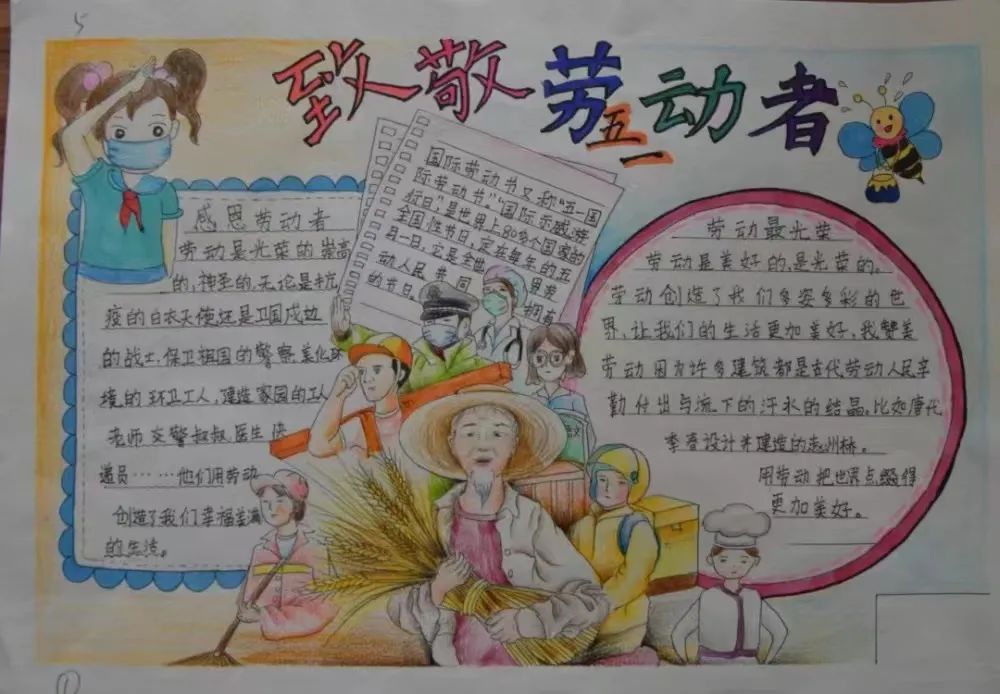 5
致敬劳动者
五一
国际劳动节又称“五一国
际劳动节”“国际示威游
行日”,是世界上80多个国家的
全国性节日,定在每年的五
月一日。它是全世界劳
动人民共同拥有
的节日。
感恩劳动者
劳动是光荣的崇高
的,神圣的,无论是抗
疫的白衣天使还是卫国戍边
的战士,保卫祖国的警察,美化环
境的环卫工人,建造家园的工人
老师交警叔叔,医生快
递员……他们用劳动
创造了我们幸福美满
的生活。
劳动最光荣
劳动是美好的,是光荣的。
劳动创造了我们多姿多彩的世
界、让我们的生活更加美好,我赞美
劳动因为许多建筑都是古代劳动人民辛
勤付出与流下的汗水的结晶,比如唐代
李春设计并建造的赵州桥。
用劳动把世界点缀得
更加美好。
语文
①